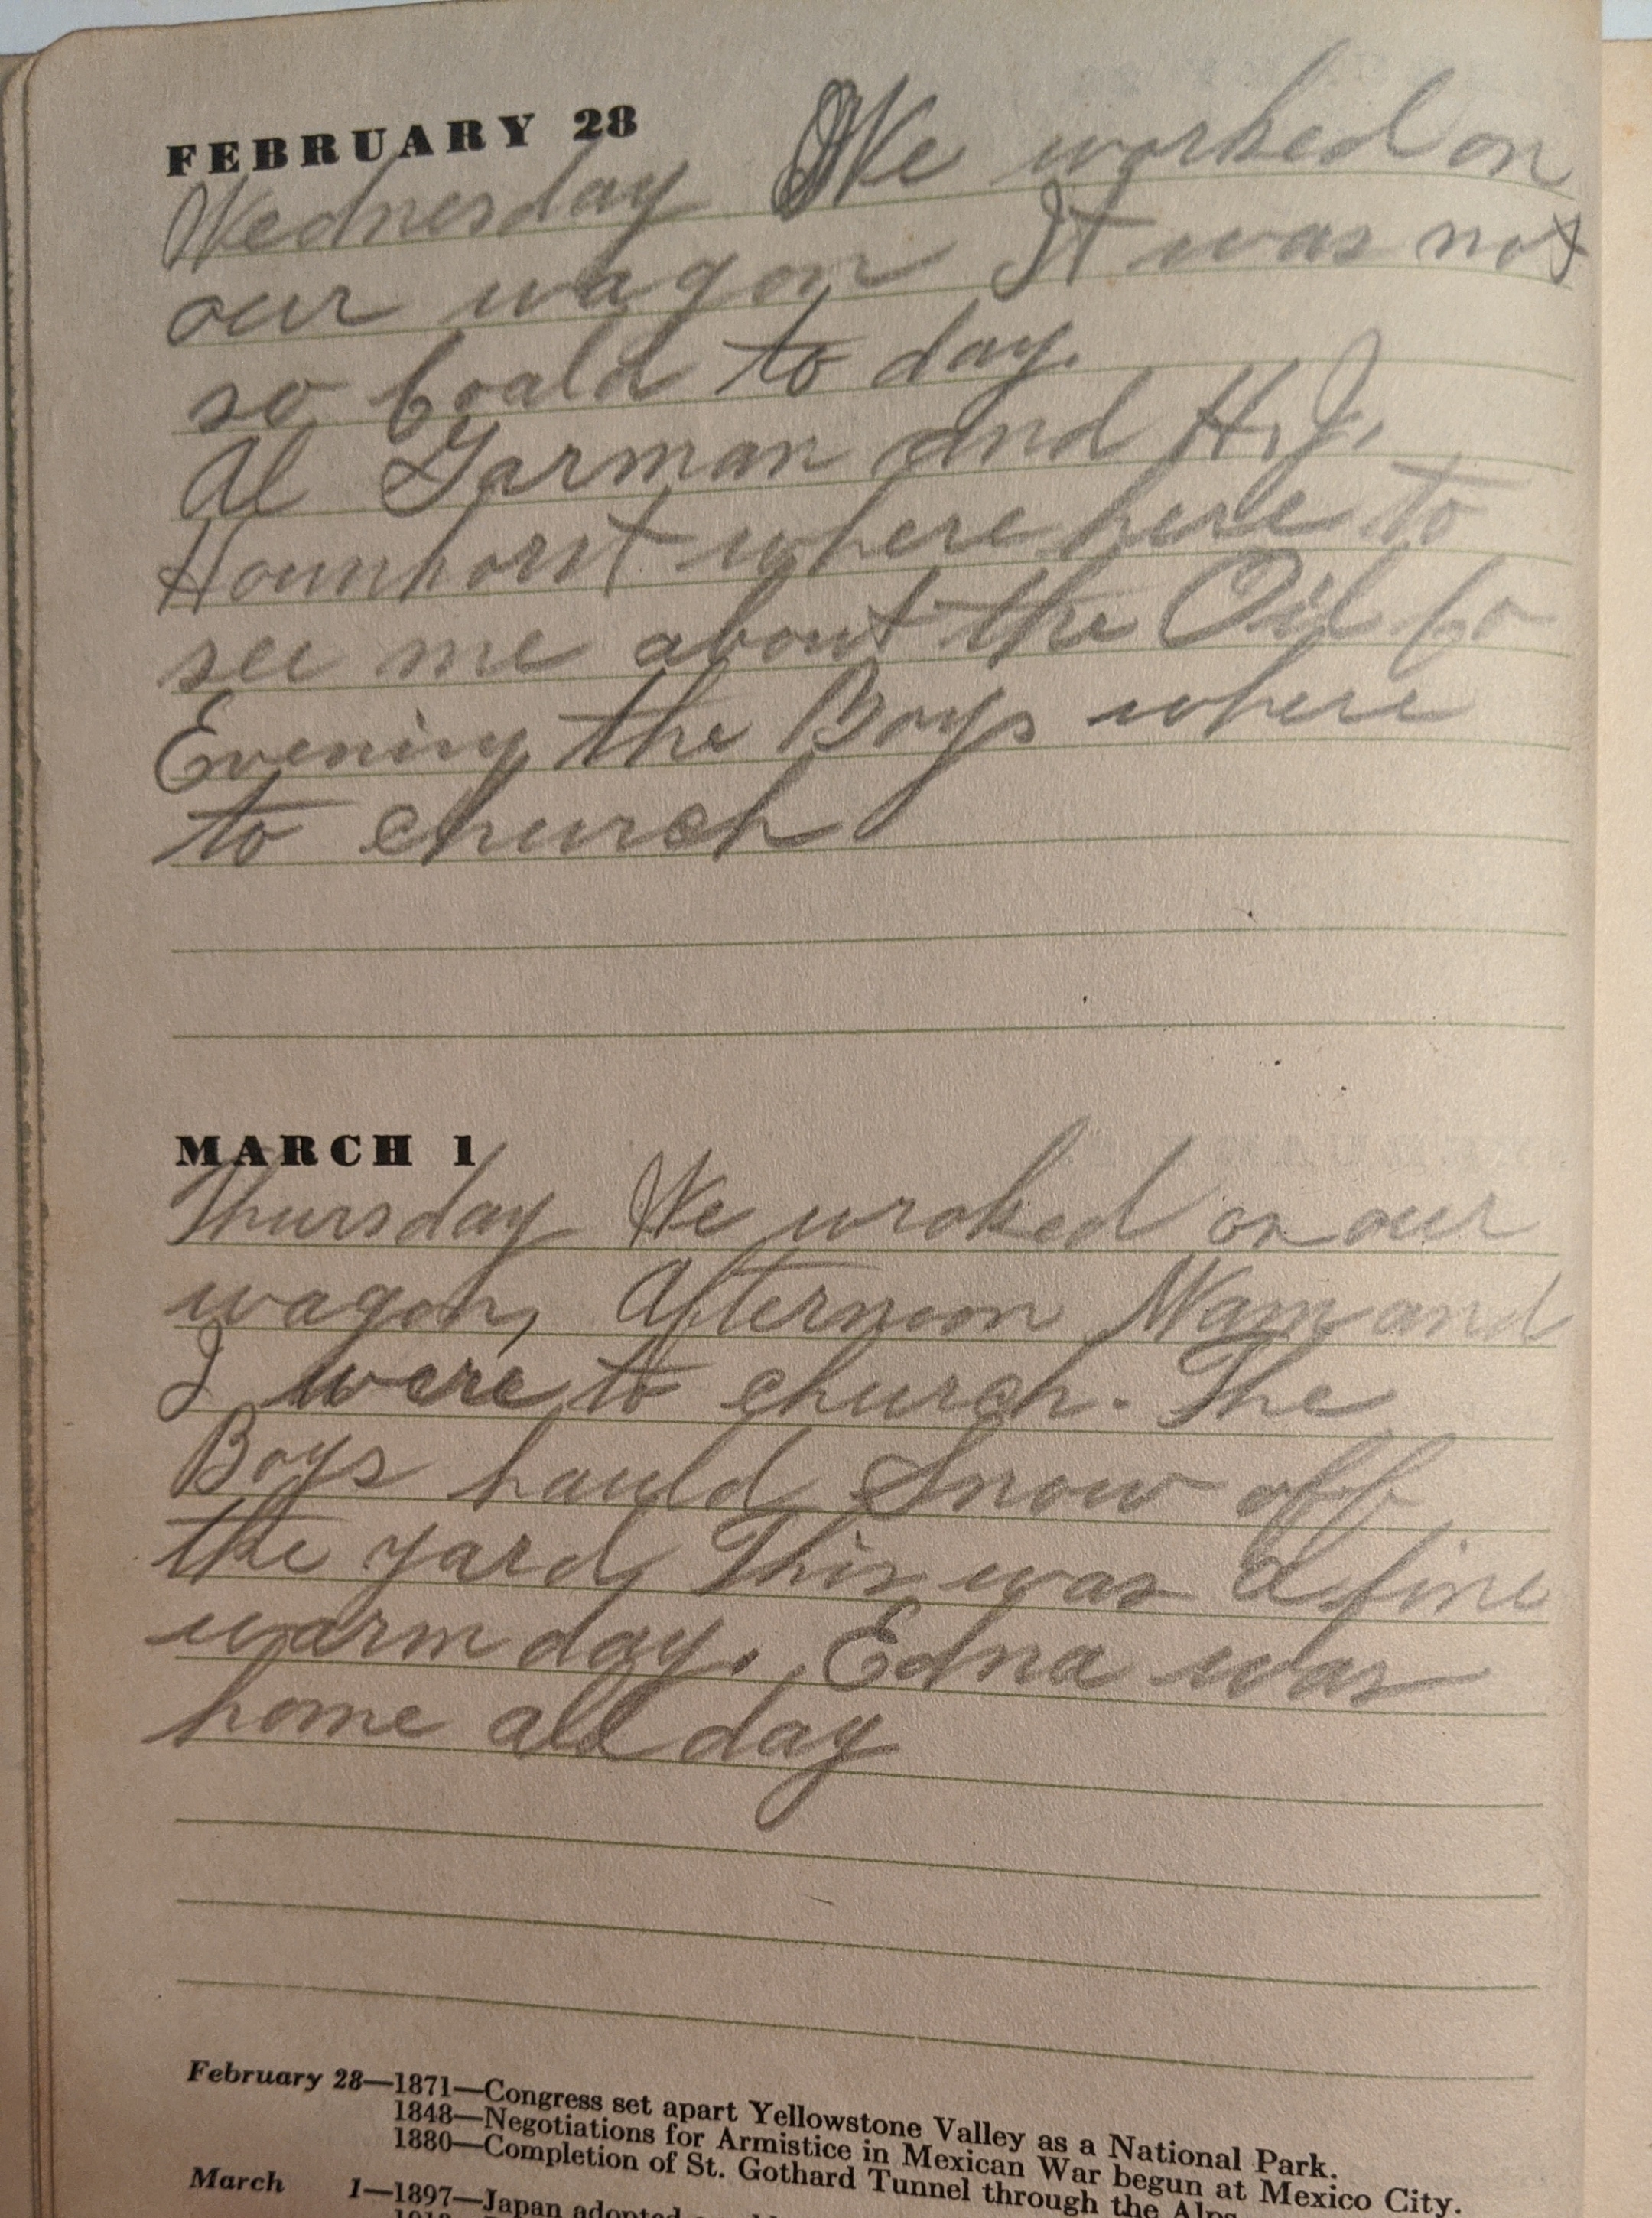 FEBRUARY 28
Wednesday We worked on
our wagon It was not
so coald to day.
Al Garman and H. J.
where here to
see me about the Oil Co
Evening the Boys where
to church
MARCH 1
Thursday We wroked on our
wagon, Afternoon Mam and
I were to church. The
Boys hauld Snow off
the yard, This was a fine
warm day. Edna was
home all day
February 28—1871—Congress set apart Yellowstone Valley as a National Park.
1848—Negotiations for Armistice in Mexican War begun at Mexico City.
1880—Completion of St. Gothard Tunnel through the Alps
March 1—1897—Japan adopted